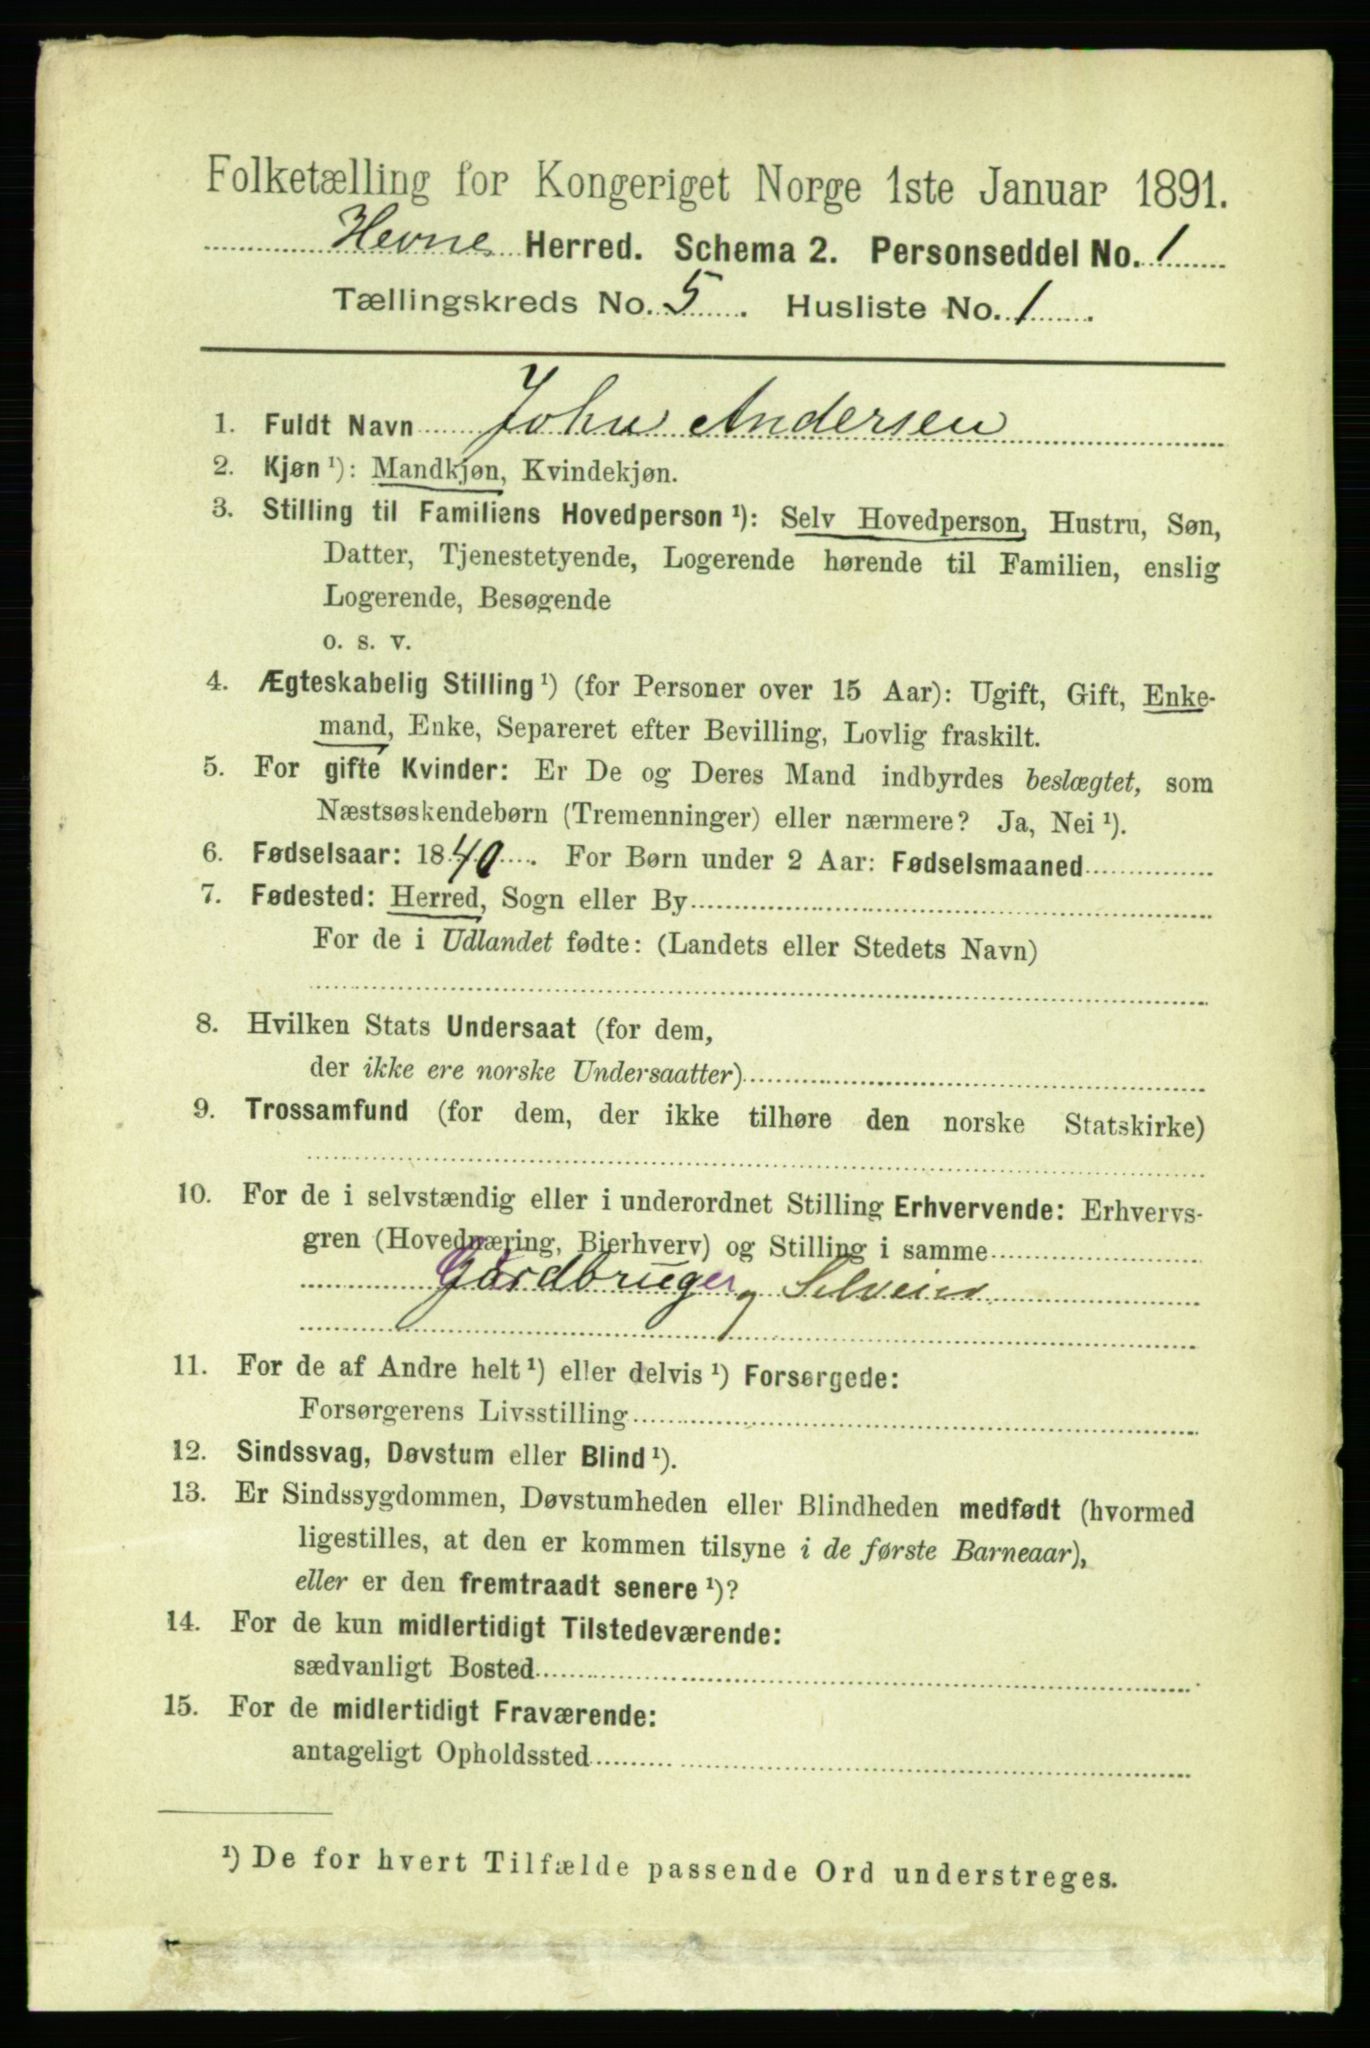 Folketælling for Kongeriget Norge 1ste Januar 1891.
Hevne Herred. Schema 2. Personseddel No. 1
Tællingskreds No. 5. Husliste No. 1.
1. Fuldt Navn John Andersen
2. Kjøn ¹): Mandkjøn, Kvindekjøn.
3. Stilling til Familiens Hovedperson ¹): Selv Hovedperson, Hustru, Søn,
Datter, Tjenestetyende, Logerende hørende til Familien, enslig
Logerende, Besøgende
o. s. v.
4. Ægteskabelig Stilling ¹) (for Personer over 15 Aar): Ugift, Gift, Enke-
mand, Enke, Separeret efter Bevilling, Lovlig fraskilt.
5. For gifte Kvinder: Er De og Deres Mand indbyrdes beslægtet, som
Næstsøskendebørn (Tremenninger) eller nærmere? Ja, Nei ¹).
6. Fødselsaar: 1840. For Børn under 2 Aar: Fødselsmaaned
7. Fødested: Herred, Sogn eller By
For de i Udlandet fødte: (Landets eller Stedets Navn)
8. Hvilken Stats Undersaat (for dem,
der ikke ere norske Undersaatter)
9. Trossamfund (for dem, der ikke tilhøre den norske Statskirke)
10. For de i selvstændig eller i underordnet Stilling Erhvervende: Erhvervs-
gren (Hovednæring, Bierhverv) og Stilling i samme
Gårdbruger og Selveier
11. For de af Andre helt ¹) eller delvis ¹) Forsørgede:
Forsørgerens Livsstilling
12. Sindssvag, Døvstum eller Blind ¹).
13. Er Sindssygdommen, Døvstumheden eller Blindheden medfødt (hvormed
ligestilles, at den er kommen tilsyne i de første Barneaar),
eller er den fremtraadt senere ¹)?
14. For de kun midlertidigt Tilstedeværende:
sædvanligt Bosted
15. For de midlertidigt Fraværende:
antageligt Opholdssted
¹) De for hvert Tilfælde passende Ord understreges.